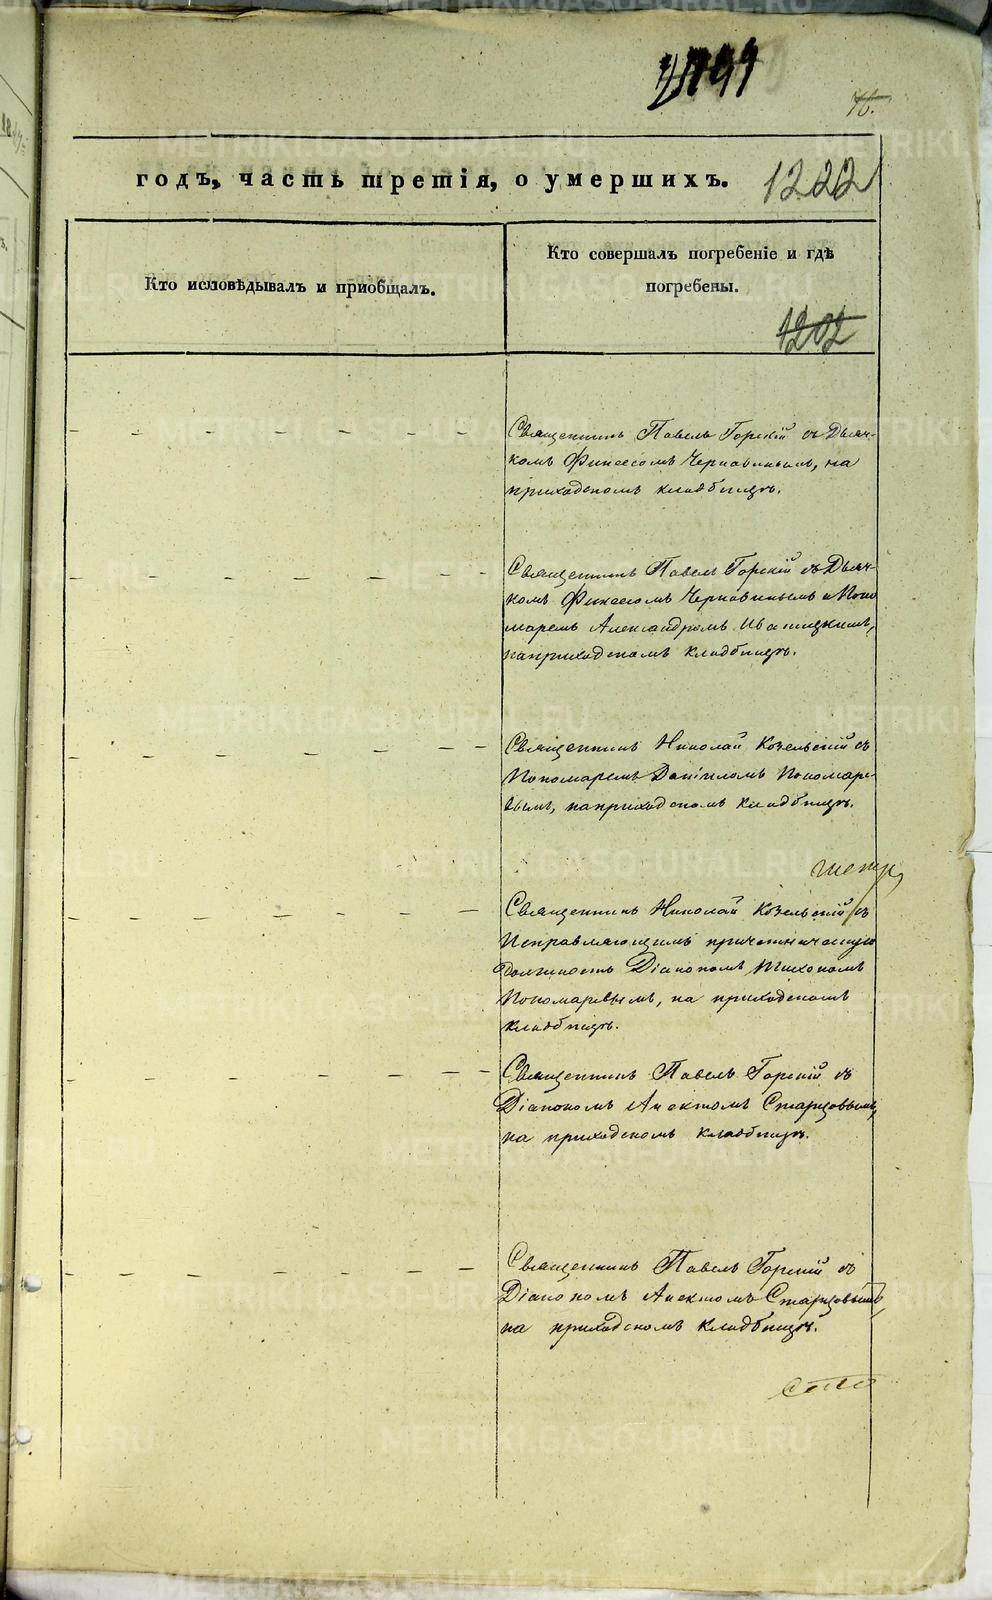 76.
годъ, часть третія, о умершихъ. 1222
Кто исповѣдывалъ и пріобщалъ.
Кто совершалъ погребеніе и гдѣ
погребены.
1202
Священникъ Павелъ Горскій съ Дьяч-
комъ Финеесомъ Чернавинымъ, на
приходскомъ кладбищѣ.
Священникъ Павелъ Горскій съ Дьяч-
комъ Финеесомъ Чернавинымъ и Поно
маремъ Александромъ
на приходскомъ кладбищѣ.
Священникъ Николай Козельскій съ
Пономаремъ Даніиломъ Пономаре-
вымъ, на приходскомъ кладбищѣ.
Священникъ Николай Козельскій съ
Исправляющимъ причетническую
должность Діакономъ Тихономъ
Пономаревымъ, на приходскомъ
кладбищѣ.
Священникъ Павелъ Горскій съ
Діакономъ Анектомъ Старцовымъ,
на приходскомъ кладбищѣ.
Священникъ Павелъ Горскій съ
Діакономъ Анектомъ Старцовымъ,
на приходскомъ кладбищѣ.
METRIKI.GASO-URAL.RU